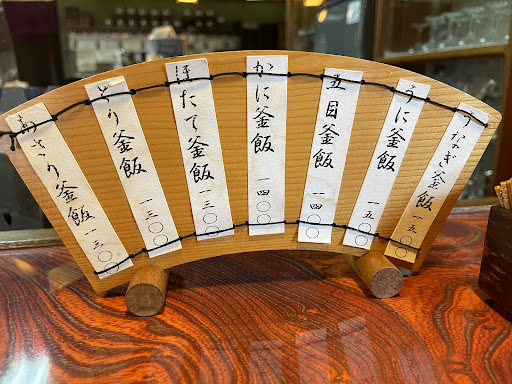 うなぎ釜飯 一五〇〇
うに釜飯 一五〇〇
五目釜飯 一四〇〇
かに釜飯 一四〇〇
ほたて釜飯 一三〇〇
とり釜飯 一三〇〇
あさり釜飯 一三〇〇